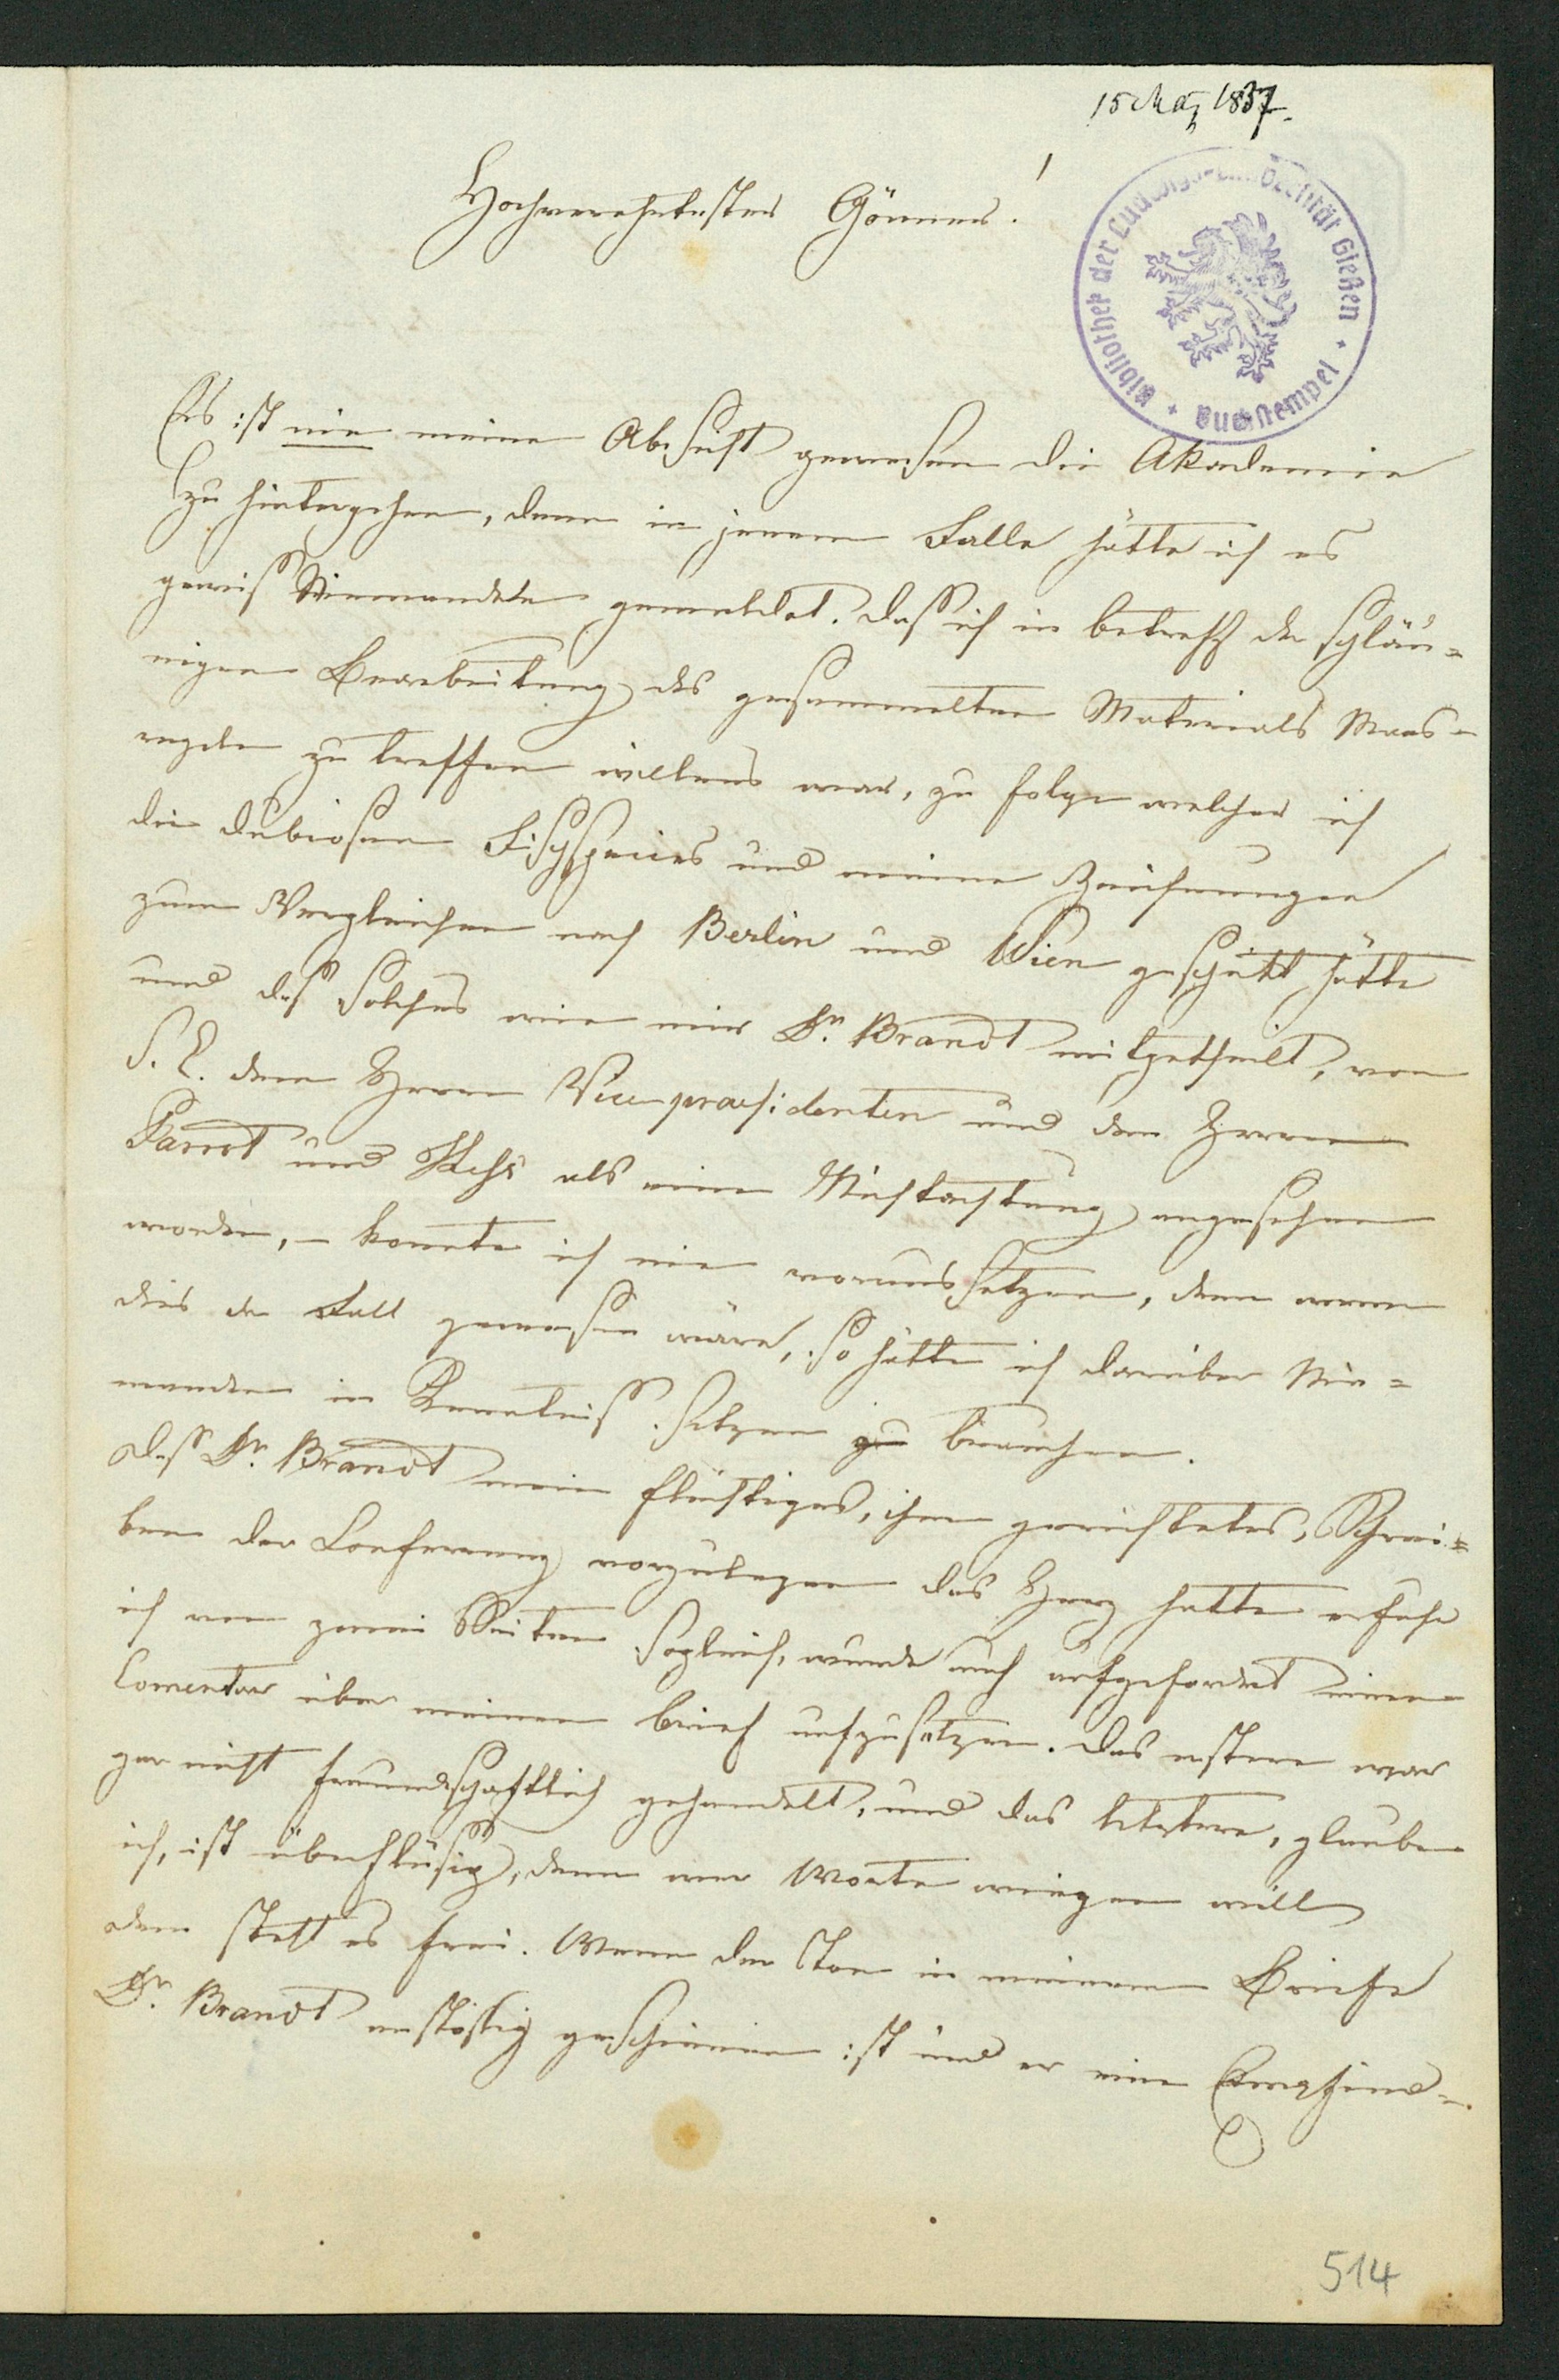 15 Maz 1837.
Hochverehrtester Gönner!
Bibliothek der Ludwigs-Universität Gießen + Buchstempel +
Es ist nie meine Absicht gewesen die Akademie
zu hintergehen, denn in jenem Falle hätte ich es
gewiß Niemandem gemeldet. Daß ich in betreff der schläu=
nigen Bearbeitung des gesammelten Materials Maas=
regeln zu treffen willens war, zu folge welcher ich
die dubiosen Fischspecies und meine Zeichnungen
zum Vergleichen nach Berlin und Wien geschickt hätte
und daß solches wie mir Dr. Brandt mitgetheilt, von
S. E. dem Herrn Vicepraesidenten und den Herren
Parrot und Hess als eine Misachtung angesehen
worden, – konnte ich nie voraussetzen, denn wenn
dies der Fall gewesen wäre, so hätte ich darüber Nie=
manden in Kenntniß setzen zu brauchen.
Daß Dr. Brandt mein flüchtiges, ihm gerichtetes, Schrei=
ben der Conferenz vorzulegen das Herz hatte erfuhr
ich von zwei Seiten sogleich, wurde auch aufgefordert einen
Comentar über meinen brief aufzusetzen. Das erstere war
gar nicht freundschaftlich gehandelt, und das letztere, glaube
ich, ist überflüsig, denn wer Worte wiegen will
dem steht es frei. Wenn der Ton in meinem Briefe
Dr. Brandt anstößig geschienen ist und er eine
514